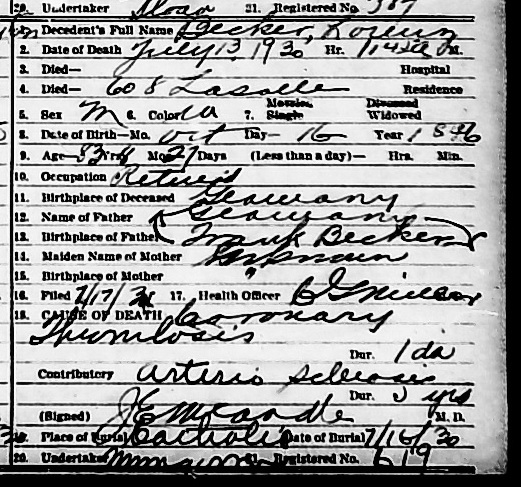 20. Undertaker Sloan 21. Registered No. 587
1. Decedent's Full Name Becker, Lorenz
2. Date of Death July 13, 1930 Hr. M.
3. Died— Hospital
4. Died— 608 Lasalle Residence
5. Sex M 6. Color W 7. Married Single Divorced Widowed
8. Date of Birth—Mo. Oct Day— 16 Year 1846
9. Age— 83 Yrs 8 Mo. 27 Days (Less than a day)— Hrs. Min.
10. Occupation Retired
11. Birthplace of Deceased Germany
12. Name of Father Germany
13. Birthplace of Father Frank Becker
14. Maiden Name of Mother Unknown
15. Birthplace of Mother "
16. Filed 7/17/30 17. Health Officer
18. CAUSE OF DEATH Coronary
Thrombosis
Dur. 1 da
Contributory Arterio Sclerosis
Dur. 5 yrs
(Signed) J E McCardle M. D.
19. Place of Burial Catholic Date of Burial 7/16/30
20. Undertaker 21. Registered No. 619